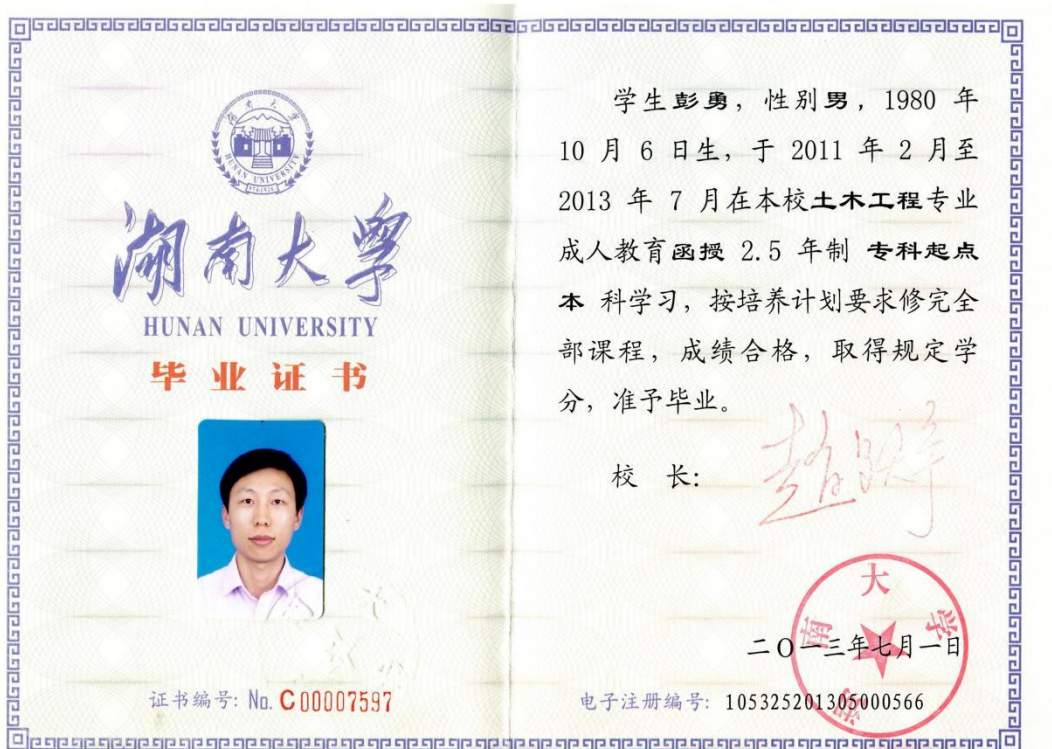 湖南大学
HUNAN UNIVERSITY
湖南大学
HUNAN UNIVERSITY
毕业证书
证书编号: No. C00007597
学生彭勇，性别男，1980 年
10 月 6 日生，于 2011 年 2 月至
2013 年 7 月在本校土木工程专业
成人教育函授 2.5 年制 专科起点
本 科学习，按培养计划要求修完全
部课程，成绩合格，取得规定学
分，准予毕业。
校 长:
湖南大学
二〇一三年七月一日
电子注册编号: 105325201305000566